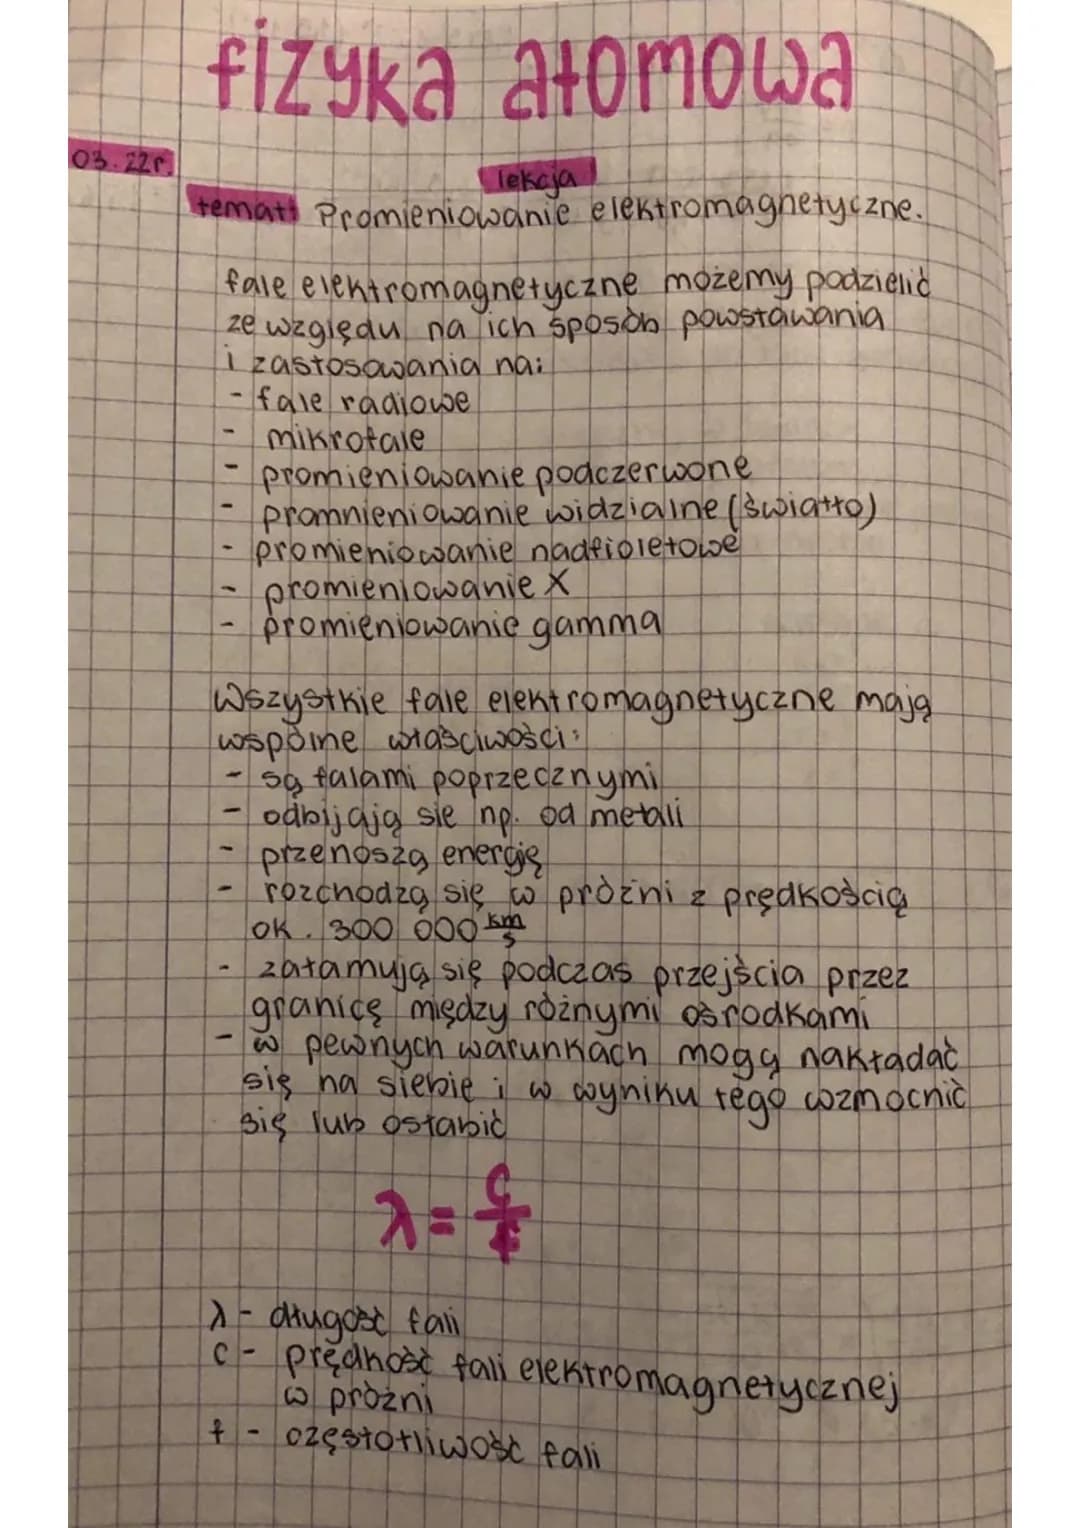 fizyka atomowa
03.22r.
lekcja
temat: Promieniowanie elektromagnetyczne.
fale elektromagnetyczne możemy podzielić
ze względu na ich sposób powstawania
i zastosowania na:
- fale radiowe
- mikrofale
- promieniowanie podczerwone
- promnieniowanie widzialne (światło)
- promieniowanie nadfioletowe
- promieniowanie X
- promieniowanie gamma
Wszystkie fale elektromagnetyczne mają
wspólne właściwości:
- są falami poprzecznymi
- odbijają się np. od metali
- przenoszą energię
- rozchodzą się w próżni z prędkością
ok. 300 000 km/s
- załamują się podczas przejścia przez
granicę między różnymi ośrodkami
- w pewnych warunkach mogą nakładać
się na siebie i w wyniku tego wzmocnić
się lub osłabić
λ = c/f
λ - długość fali
c - prędkość fali elektromagnetycznej
w próżni
f - częstotliwość fali